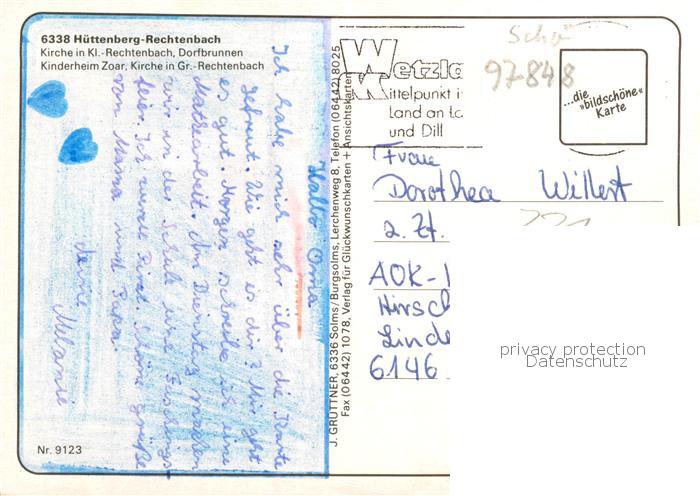 6338 Hüttenberg-Rechtenbach
Kirche in Kl.-Rechtenbach, Dorfbrunnen
Kinderheim Zoar, Kirche in Gr.-Rechtenbach
Hallo Oma
Ich habe mich sehr über die Karte
gefreut. Wie geht es dir? Mir geht
es gut. Morgen schreibe ich eine
Mathearbeit. Am Dienstag machen
wir in der Schule eine Faschings-
feier. Ich werde Pirat. Schöne grüße
von Mama und Papa.
deine
Melanie
Nr. 9123
J. GRUTTNER, 6336 Solms/Burgsolms, Lerchenweg 8, Telefon (06442) 8025
Fax (06442) 1078, Verlag für Glückwunschkarten + Ansichtskarten
Wetzla
ittelpunkt i
Land an La
und Dill
97-848
...die
»bildschöne«
Karte
Frau
Dorothea Willert
z. Zt.
AOK-
Hirsch
Linde
6146
privacy protection
Datenschutz